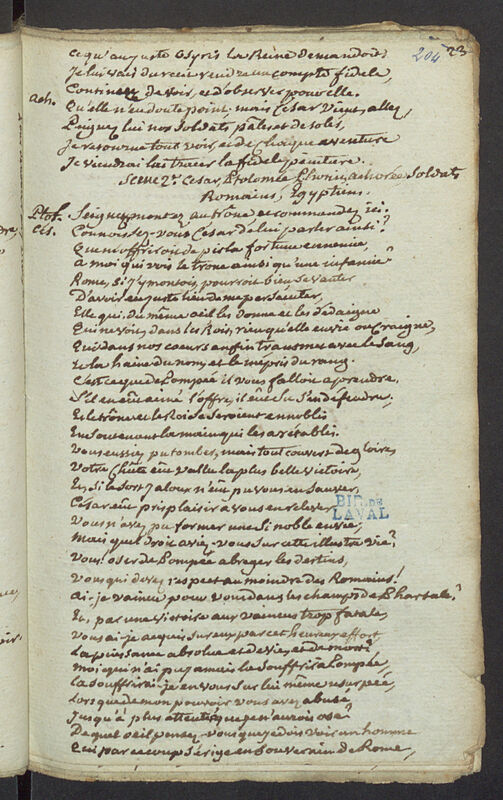 204 23
ce qu'auguste Osyris la Reine demandoit;
Je lui vais du recu rendre un compte fidele,
Ach. Continuez de voir, et d'observer pour elle.
Qu'elle n'en doute point. mais César vient, allez,
Peignez lui nos Soldats pâles et desolés,
Je retourne tout voir, et de chaque aventure
Je viendrai lui tracer la fidele peinture.
Scene 2e. César, Ptolomée, Photin, achorée, Soldats
Romains, Egyptiens.
Ptol. Seigneur montez au trône et commandez ici.
Cés. Connoissez-vous César de lui parler ainsi?
Que m'offriroit de pis la fortune ennemie,
a moi qui vois le trône ainsi qu'une infamie?
Rome, si j'y montois, pourroit bien se vanter
D'avoir eu juste lieu de me persécuter,
Elle qui du même oeil les donne et les dédaigne
Qui ne voit dans les Rois, rien qu'elle envie ou craigne,
Qui dans nos coeurs enfin transmet avec le sang,
Et la haine du nom, et le mépris du rang.
C'est ce que de Pompée il vous falloit aprendre.
S'il en eut aimé l'offre, il eût su s'en défendre;
Et le trône et le Roi se seroient ennoblis
En soutenant la main qui les a rétablis.
Vous eussiez pu tomber, mais tout couvert de gloire,
Votre chûte eut vallu la plus belle victoire,
Et, si le sort jaloux n'eût pu vous en sauver,
César eût pris plaisir à vous en relever.
Vous n'avez pu former une si noble envie;
mais quel droit aviez-vous sur cette illustre vie?
Vous! oser de Pompée abreger les destins,
Vous qui devez respect au moindre des Romains!
Ai-je vaincu pour vous dans les champs de Pharsale?
Et, par une victoire aux vaincus trop fatale,
Vous ai-je acquis sur eux par cet heureux effort
La puissance absolue et de vie, et de mort?
moi qui n'ai pu jamais la souffrir à Pompée,
La souffrirai-je en vous sur lui même usurpée,
Lorsque de mon pouvoir vous avez abusé
Jusqu'à plus attenter que je n'aurois osé?
De quel oeil pensez-vous que je dois voir un homme
Qui par ce coup s'érige en souverain de Rome,
BIB. DE
LAVAL